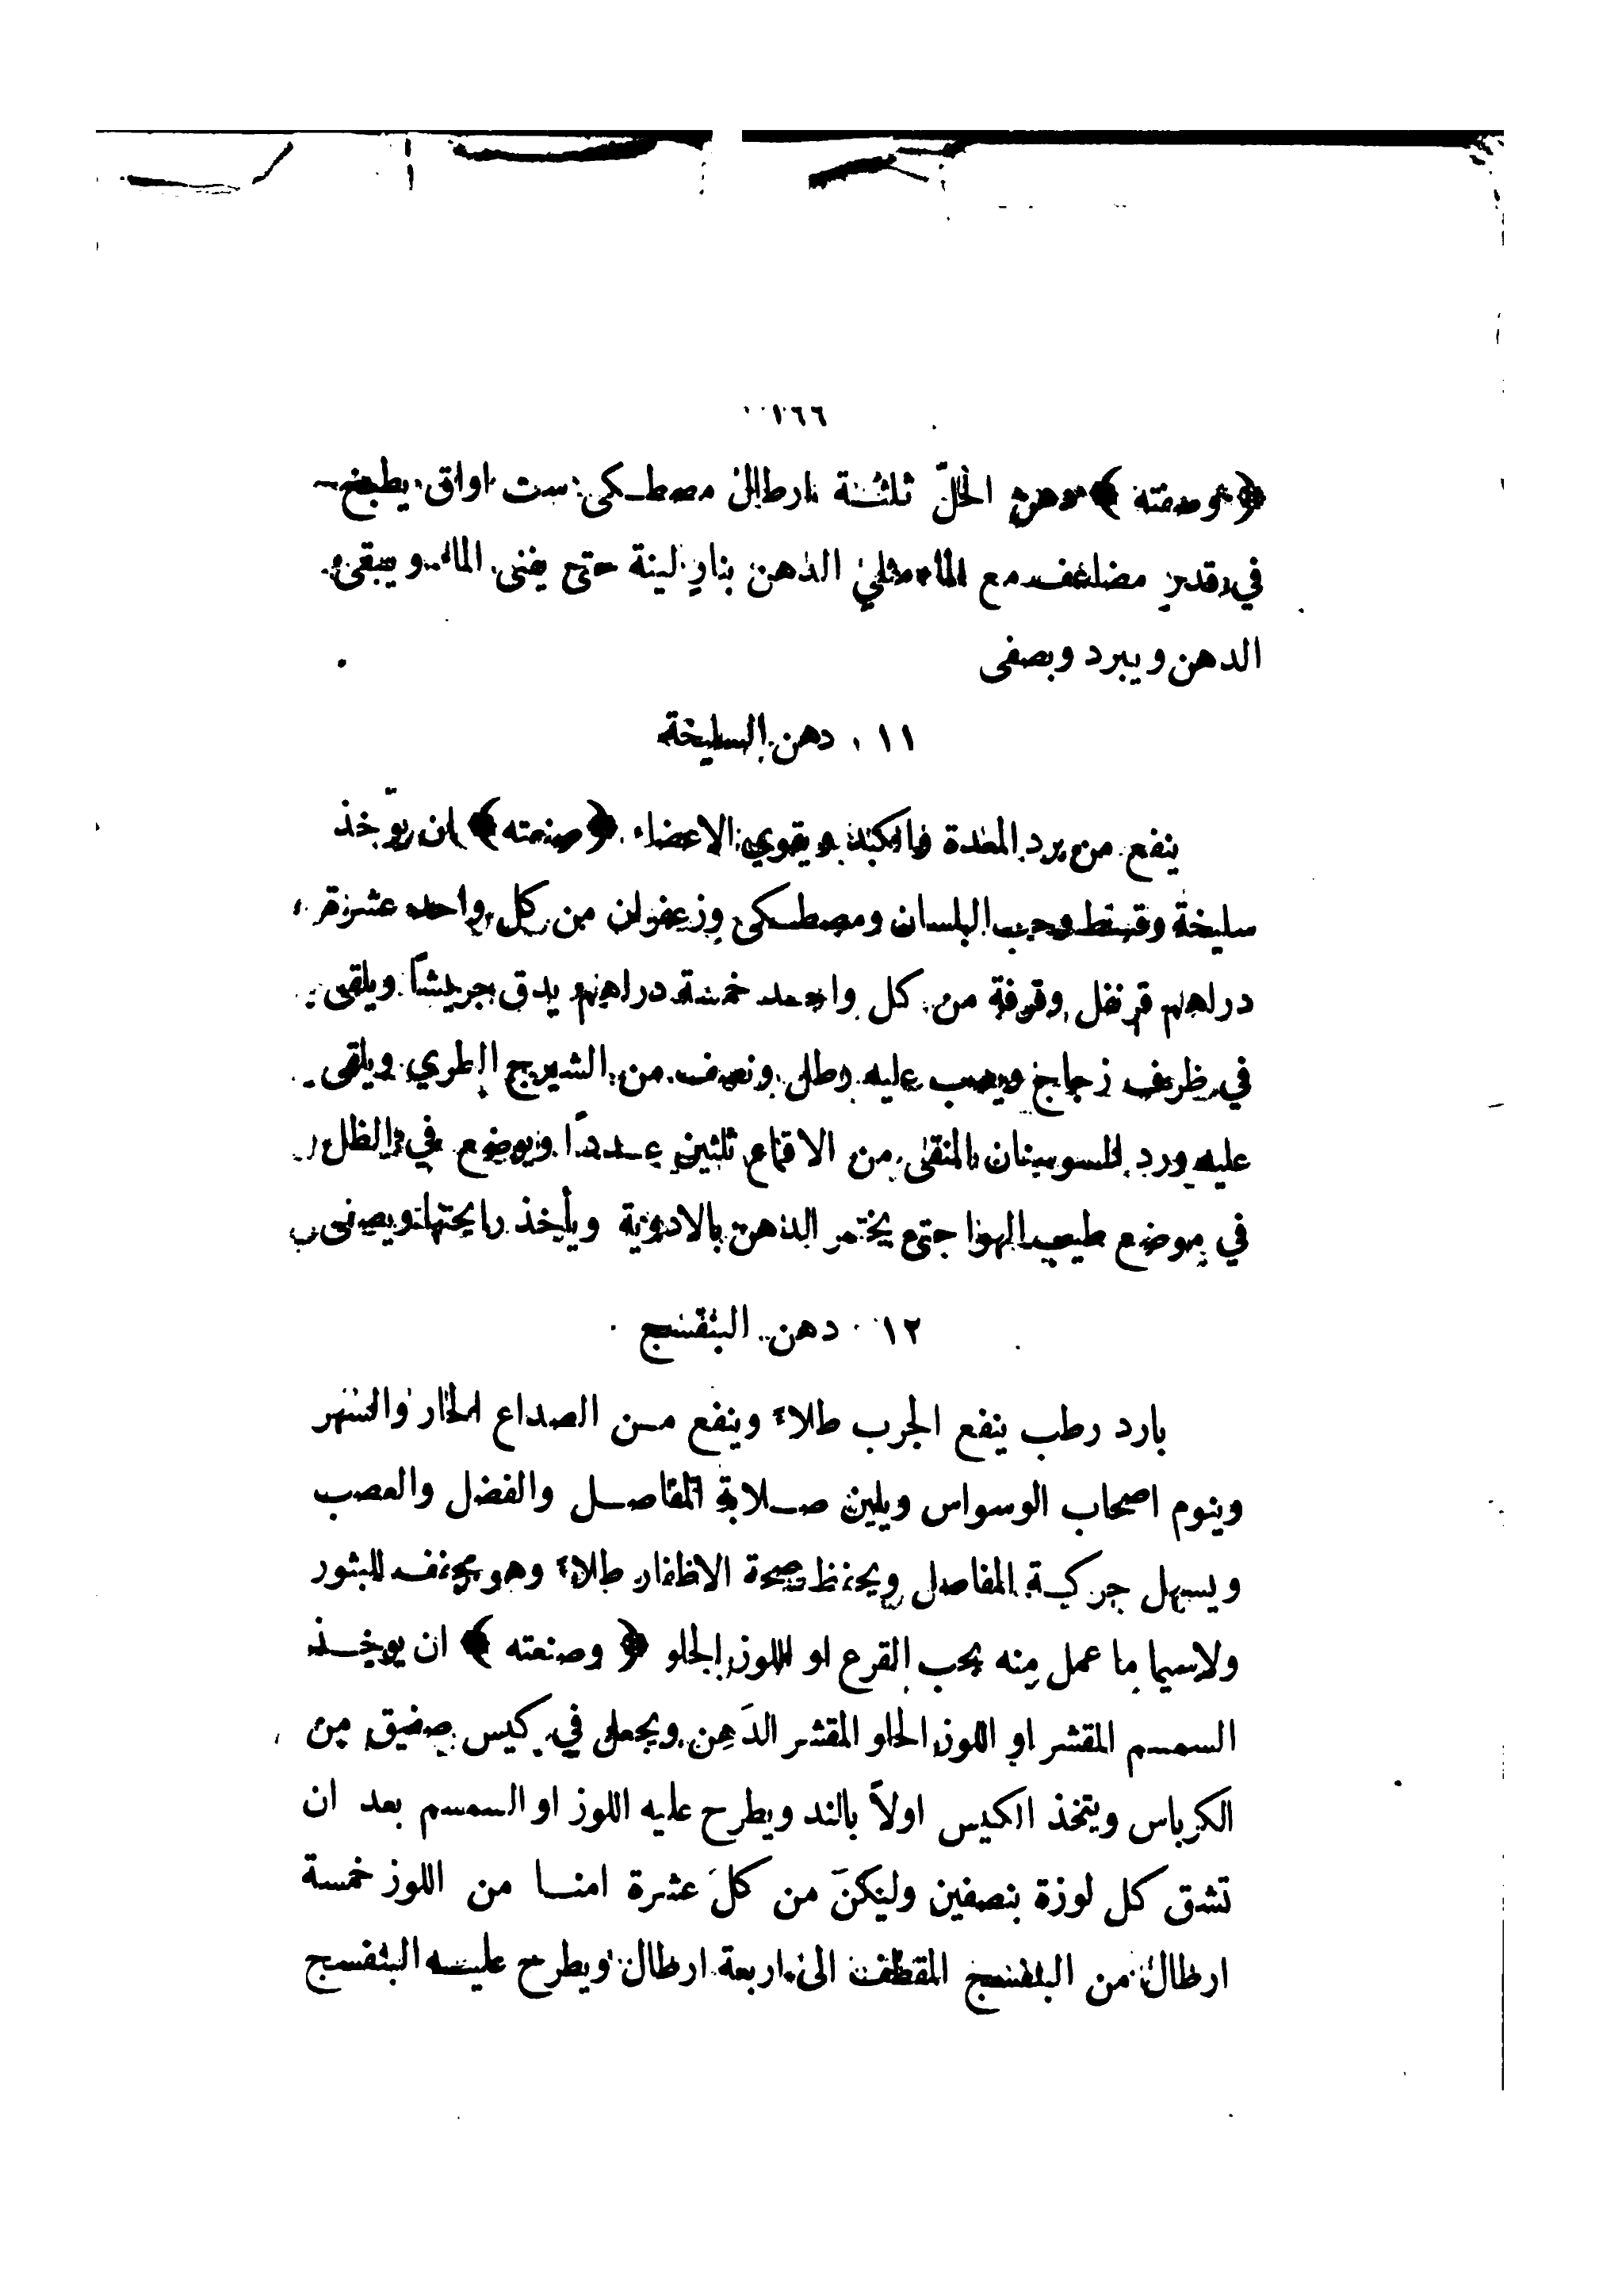 ١٦٦
﴿ وصفته ﴾ دهن الخلّ ثلثة ارطال مصطكى ست اواق يطبخ
في قدر مضاعف مع الماء مثلي الدهن بنار لينة حتى يفنى الماء ويبقى
الدهن ويبرد ويصفى
١١ دهن السليخة
ينفع من برد المعدة والكبد ويقوي الاعضاء ﴿ صنعته ﴾ ان يؤخذ
سليخة وقسط وحب البلسان ومصطكى وزعفران من كل واحد عشرة
دراهم قرنفل وقرفة من كل واحد خمسة دراهم يدق جريشاً ويلقى
في ظرف زجاج ويصب عليه رطل ونصف من الشيرج الطري ويلقى
عليه ورد السوسنان المنقى من الاقماع ثلثين عدداً ويوضع في الظل
في موضع طيب الهوا حتى يختمر الدهن بالادوية ويأخذ رايحتها ويصفى
١٢ دهن البنفسج
بارد رطب ينفع الجرب طلاءً وينفع من الصداع الحار والسهر
وينوم اصحاب الوسواس ويلين صلابة المفاصل والفضل والعصب
ويسهل حركة المفاصل ويحفظ صحة الاظفار طلاءً وهو مجفف للبثور
ولاسيما ما عمل منه بحب القرع او اللوز الحلو ﴿ وصنعته ﴾ ان يوخذ
السمسم المقشر او اللوز الحلو المقشر الدَهِن ويجعل في كيس صفيق من
الكرباس ويتخذ الكيس اولاً بالند ويطرح عليه اللوز او السمسم بعد ان
تشق كل لوزة بنصفين وليكن من كل عشرة امنا من اللوز خمسة
ارطال من البنفسج المقطف الى اربعة ارطال ويطرح عليه البنفسج